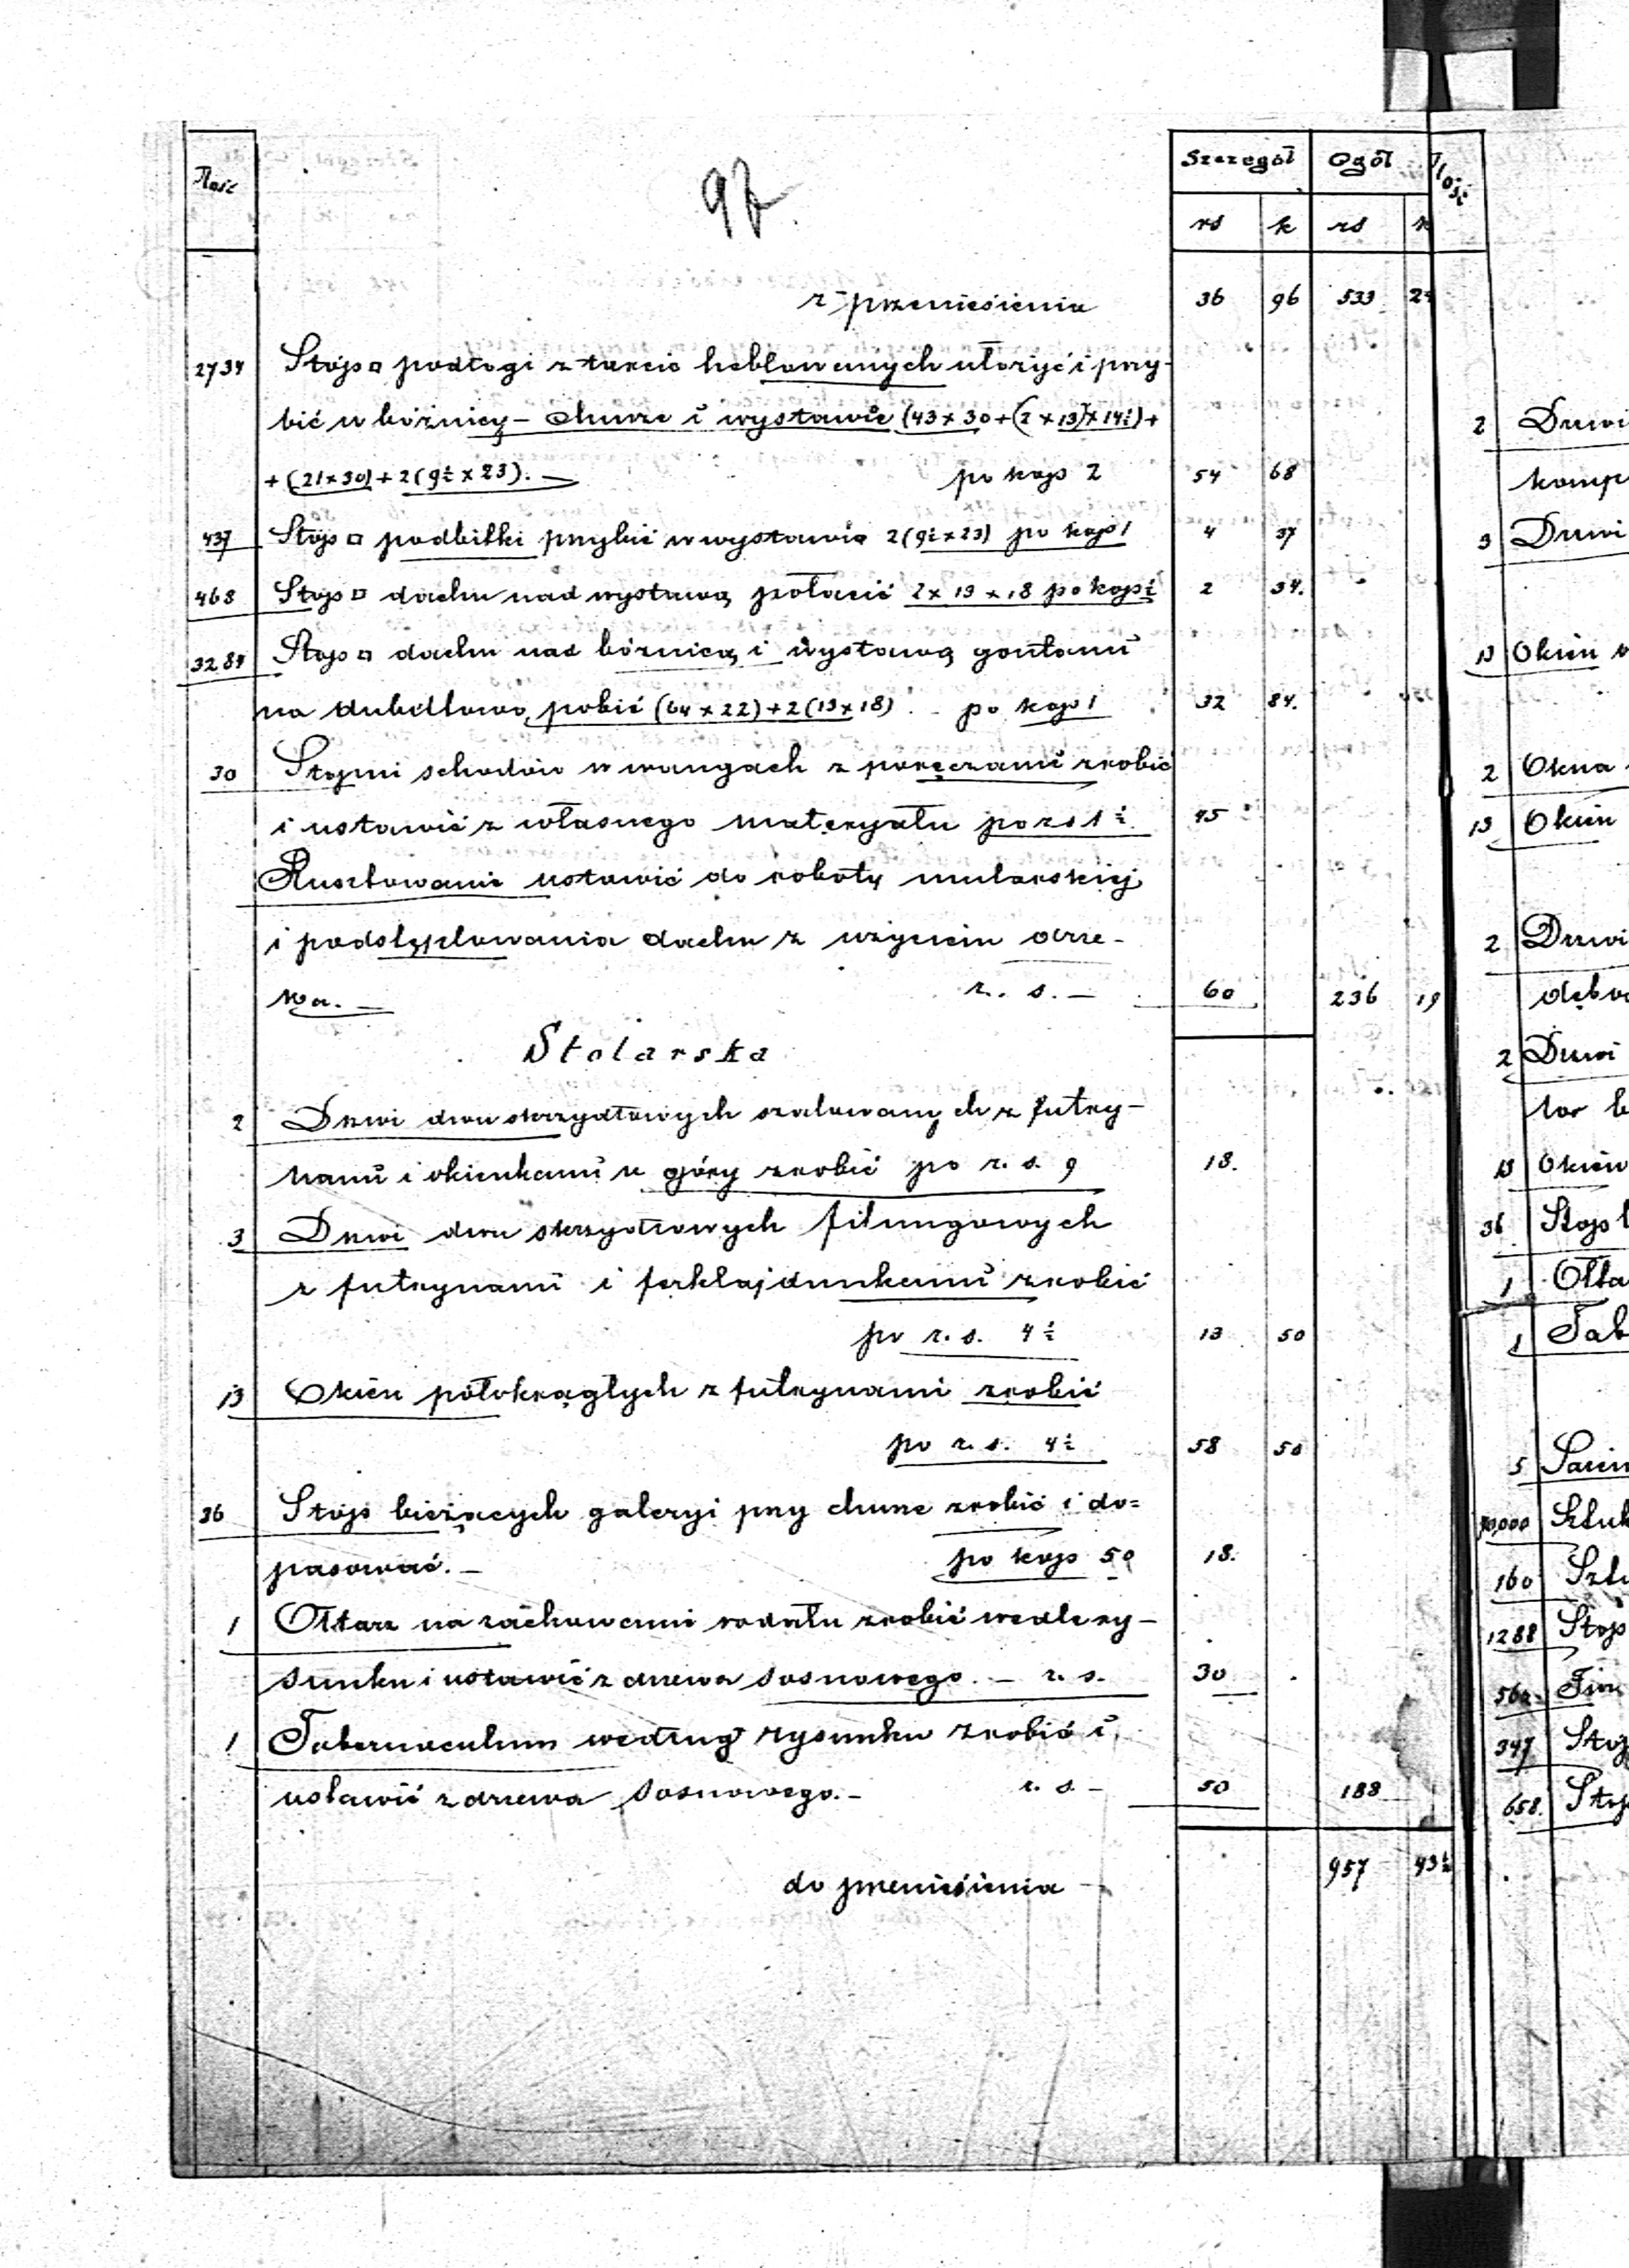 Ilość Szczegół Ogół Ilość
rs k rs k
97.
z przeniesienia 36 96 533
2734 Stóp □ podłogi z tarcic heblowanych ułożyć i przy-
bić w bóżnicy – churze i wystawie (43 x 30 + (2 x 13) x 14½) +
+ (21 x 30) + 2 (9½ x 23). — po kop 2 54 68
437 Stóp □ podbitki przybić w wystawie 2 (9½ x 23) po kop 1 4 37
468 Stóp □ dachu nad wystawą połacić 2 x 13 x 18 po kop ½ 2 34.
3284 Stóp □ dachu nad bóżnicą i wystawą gontami
na dubeltowo pobić (64 x 22) + 2 (13 x 18) . – po kop 1 32 84.
30 Stopni schodów w wangach z poręczami zrobić
i ustawić z własnego materyału po rs 1½. 45
Rusztowanie ustawić do roboty mularskiej
i podstęplowania dachu z użyciem drze-
wa. — r. s. — 60 236 19
Stolarska
2 Drzwi dwu skrzydłowych szalowanych z futry-
nami i okienkami u góry zrobić po r. s. 9 18.
3 Drzwi dwu skrzydłowych filungowych
z futrynami i ferklajdunkami zrobić
po r. s. 4½ 13 50
13 Okien półokrągłych z futrynami zrobić
po r. s. 4½ 58 50
36 Stóp bieżących galeryi przy churze zrobić i do=
pasować. — po kop 50 18.
1 Ołtarz na zachowanie rodału zrobić wedle ry-
sunku i ustawić z drzewa sosnowego. — r. s. 30
1 Tabernaculum według rysunku zrobić i
ustawić z drzewa sosnowego. — r. s. — 50 188
do przeniesienia 957 43½
2 Drzwi
3 Drzwi
13 Okien
2 Okna
13 Okien
2 Drzwi
2 Drzwi
13 Okien
36 Stóp
1
1
5
160
1288 Stóp
347
658.